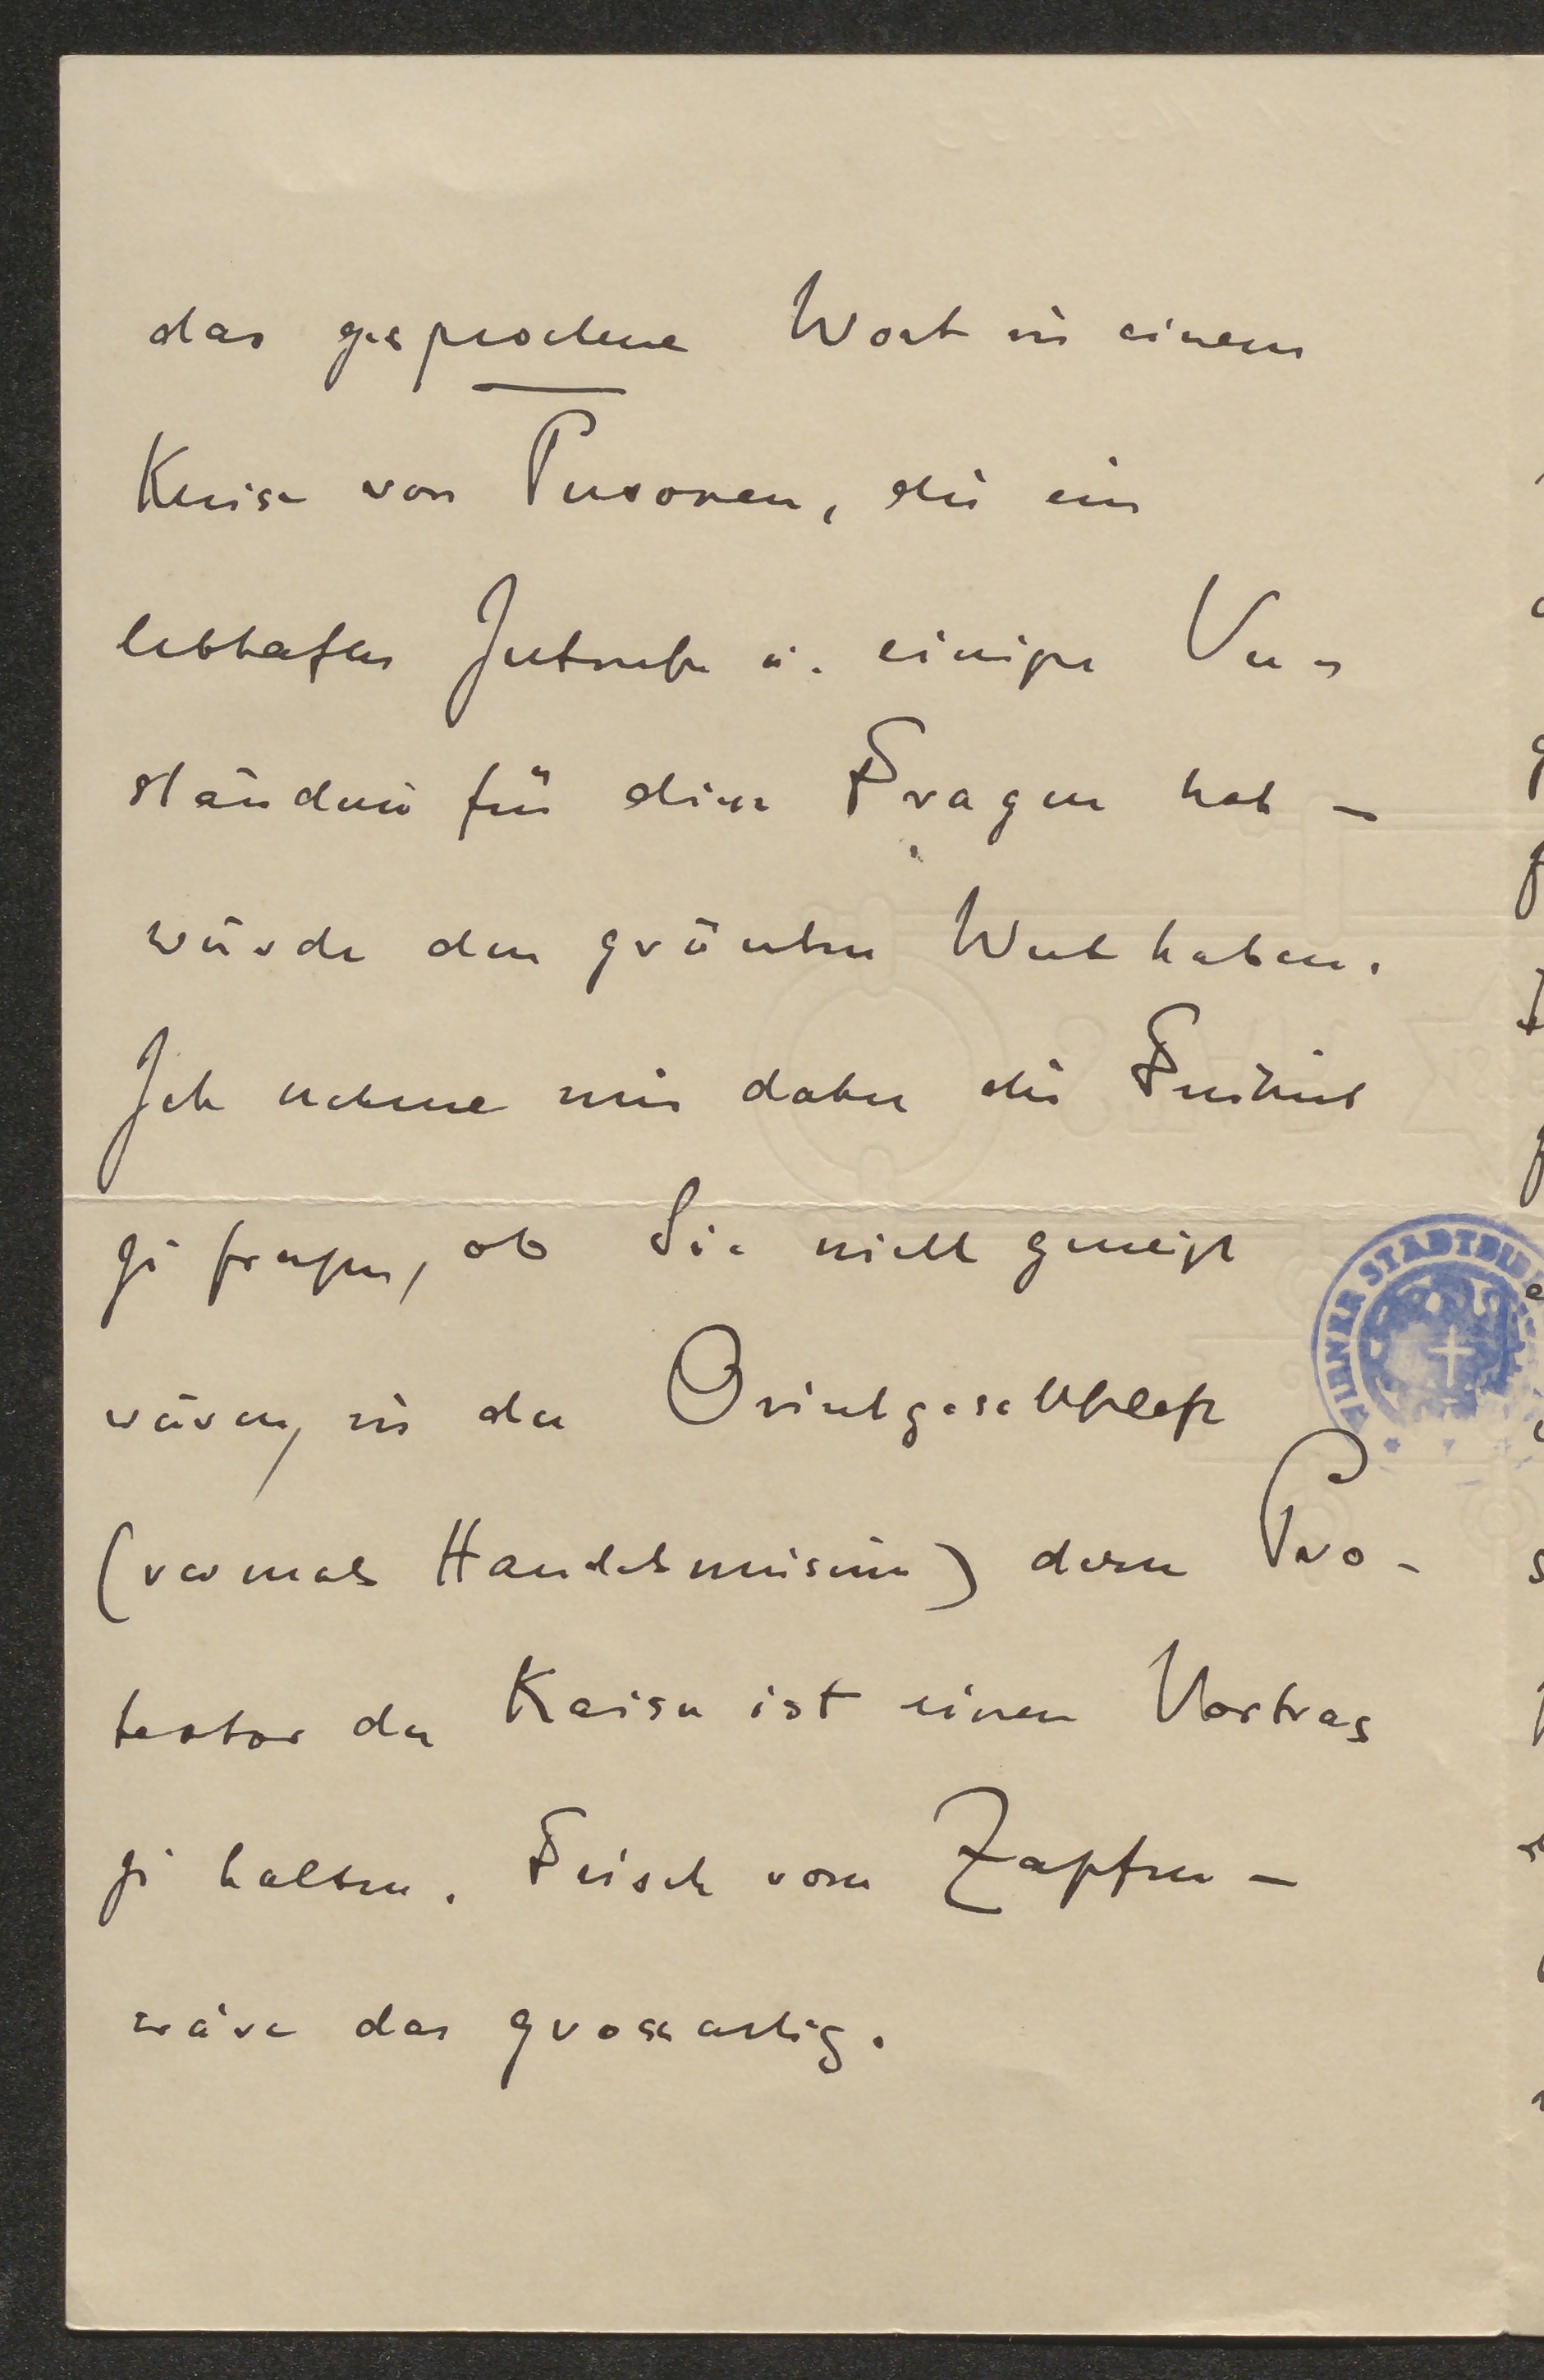 das gesprochene Wort in einem
Kreise von Personen, die ein
lebhaftes Interesse u. einiges Ver-
ständnis für diese Fragen hat –
würde den grössten Wert haben.
Ich nehme mir daher die Freiheit
zu fragen, ob Sie nicht geneigt
wären, in der Orientgesellschaft
(vormals Handelsmuseum) deren Pro-
tector der Kaiser ist einen Vortrag
zu halten. Frisch vom Zapfen –
wäre das grossartig.
WIENER STADTBIB